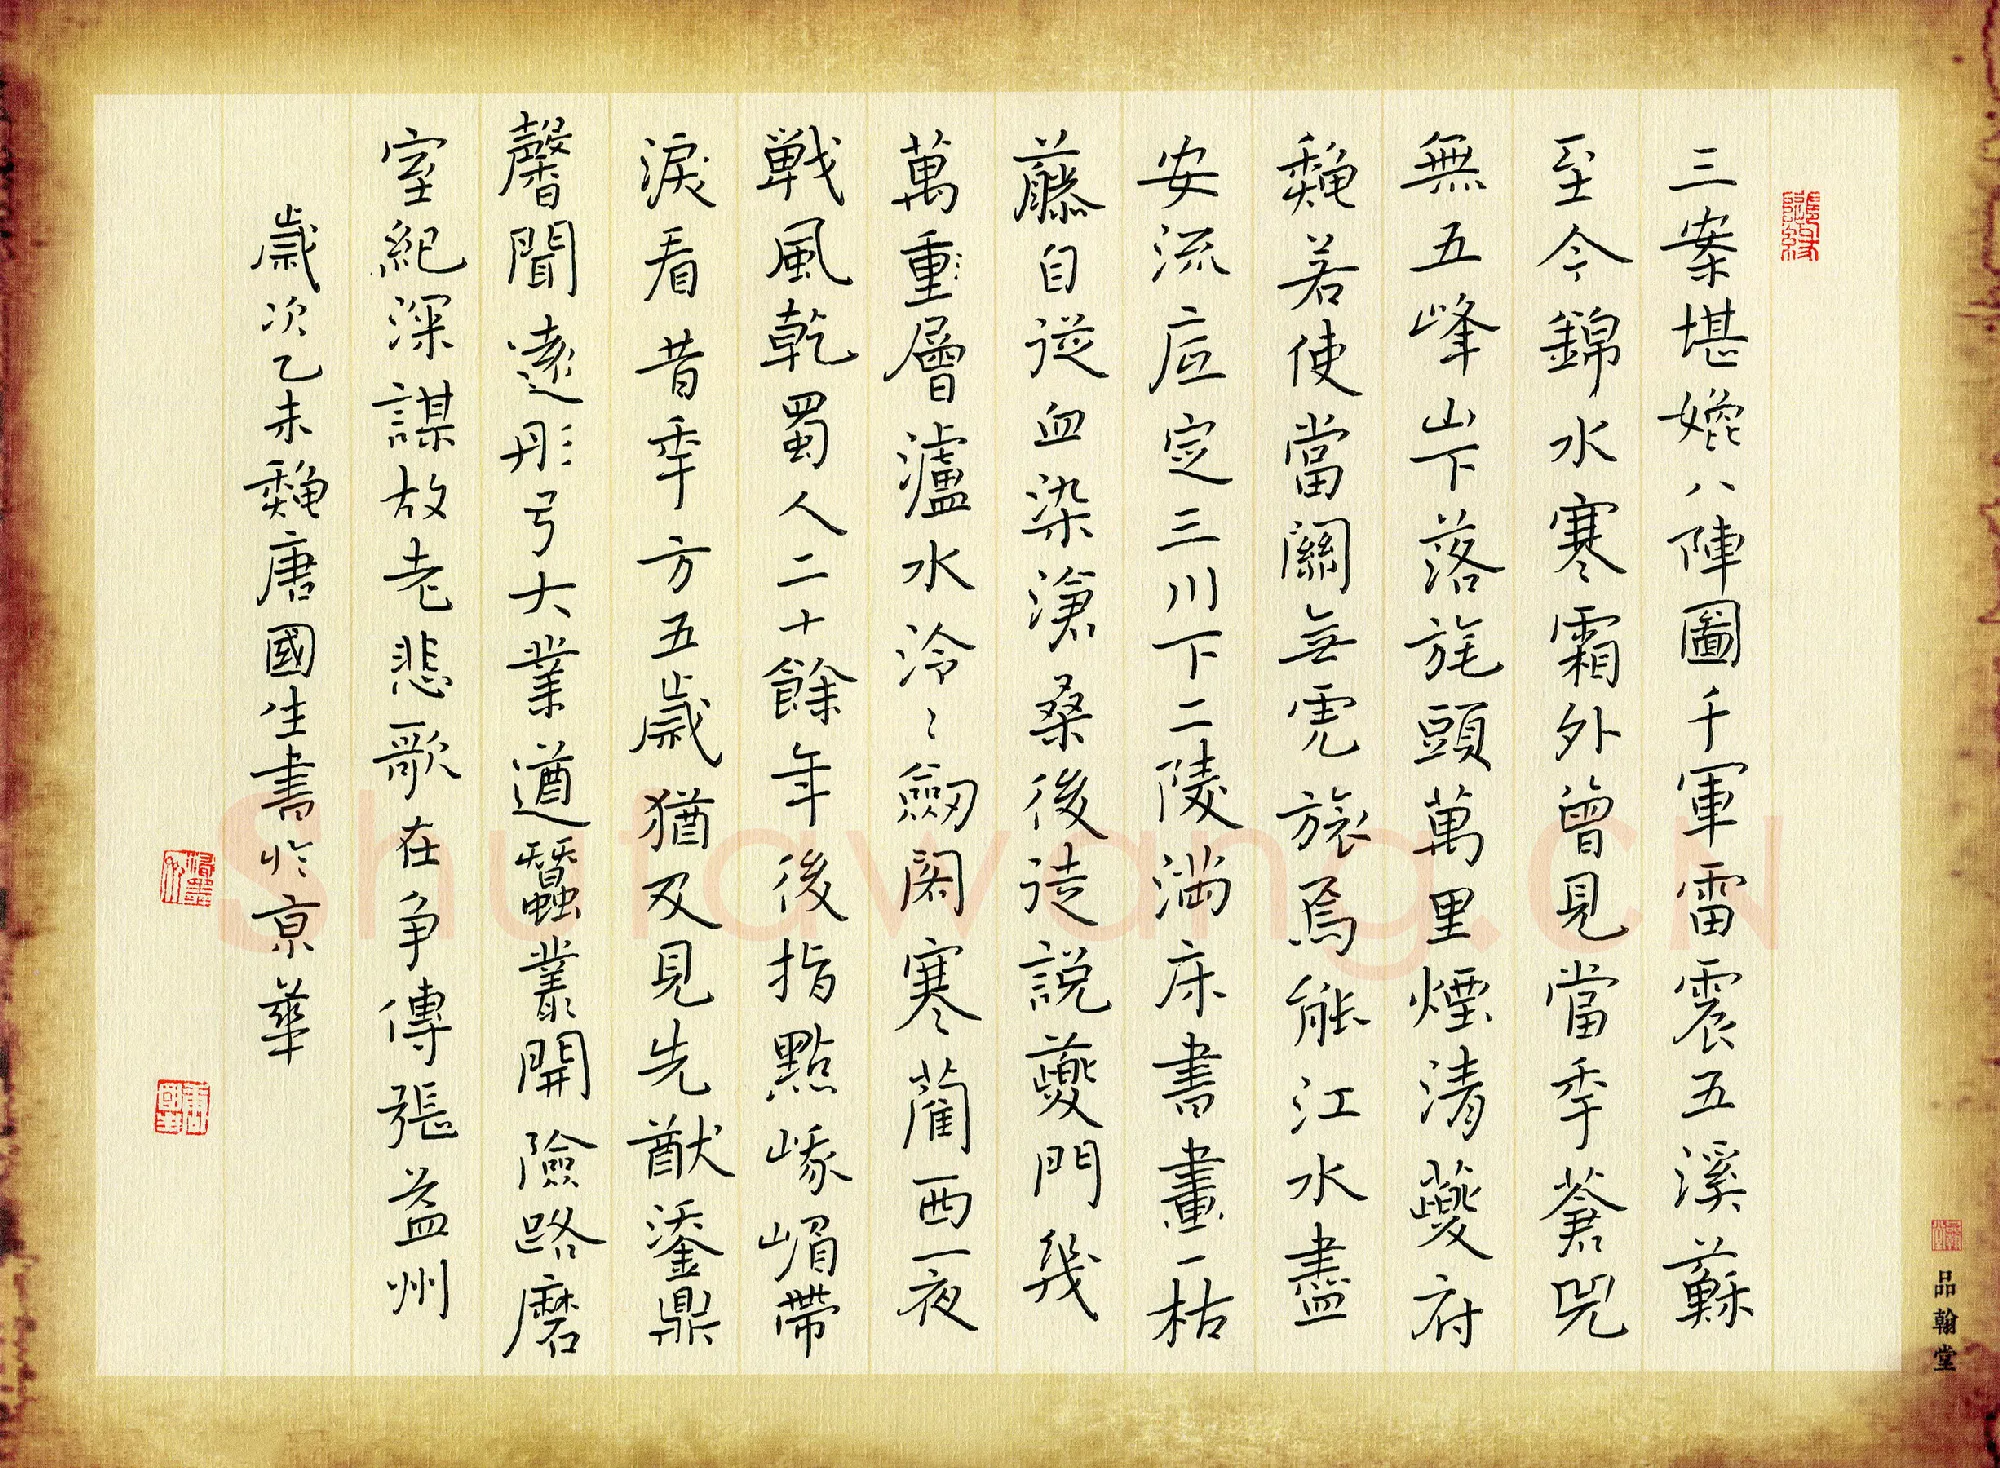 三案堪嬗八陣圖千軍雷震五溪蘇
至今錦水寒霜外曾見當季蒼兕
無五峰山下落旄頭萬里煙清夔府
魏若使當關無虎旅焉能江水盡
安流底定三川下二陵滿床書畫一枯
藤自從血染滄桑後徒説夔門幾
萬重層瀘水泠〻劔閣寒蘭西一夜
戰風乾蜀人二十餘年後指點峨嵋帶
淚看昔季方五歲猶及見先猷鎏鼎
馨聞遠彤弓大業遒蠶叢開險路磨
室紀深謀故老悲歌在争傳張益州
歲次乙未魏唐國生書於京華
品翰堂
Shufawang.CN